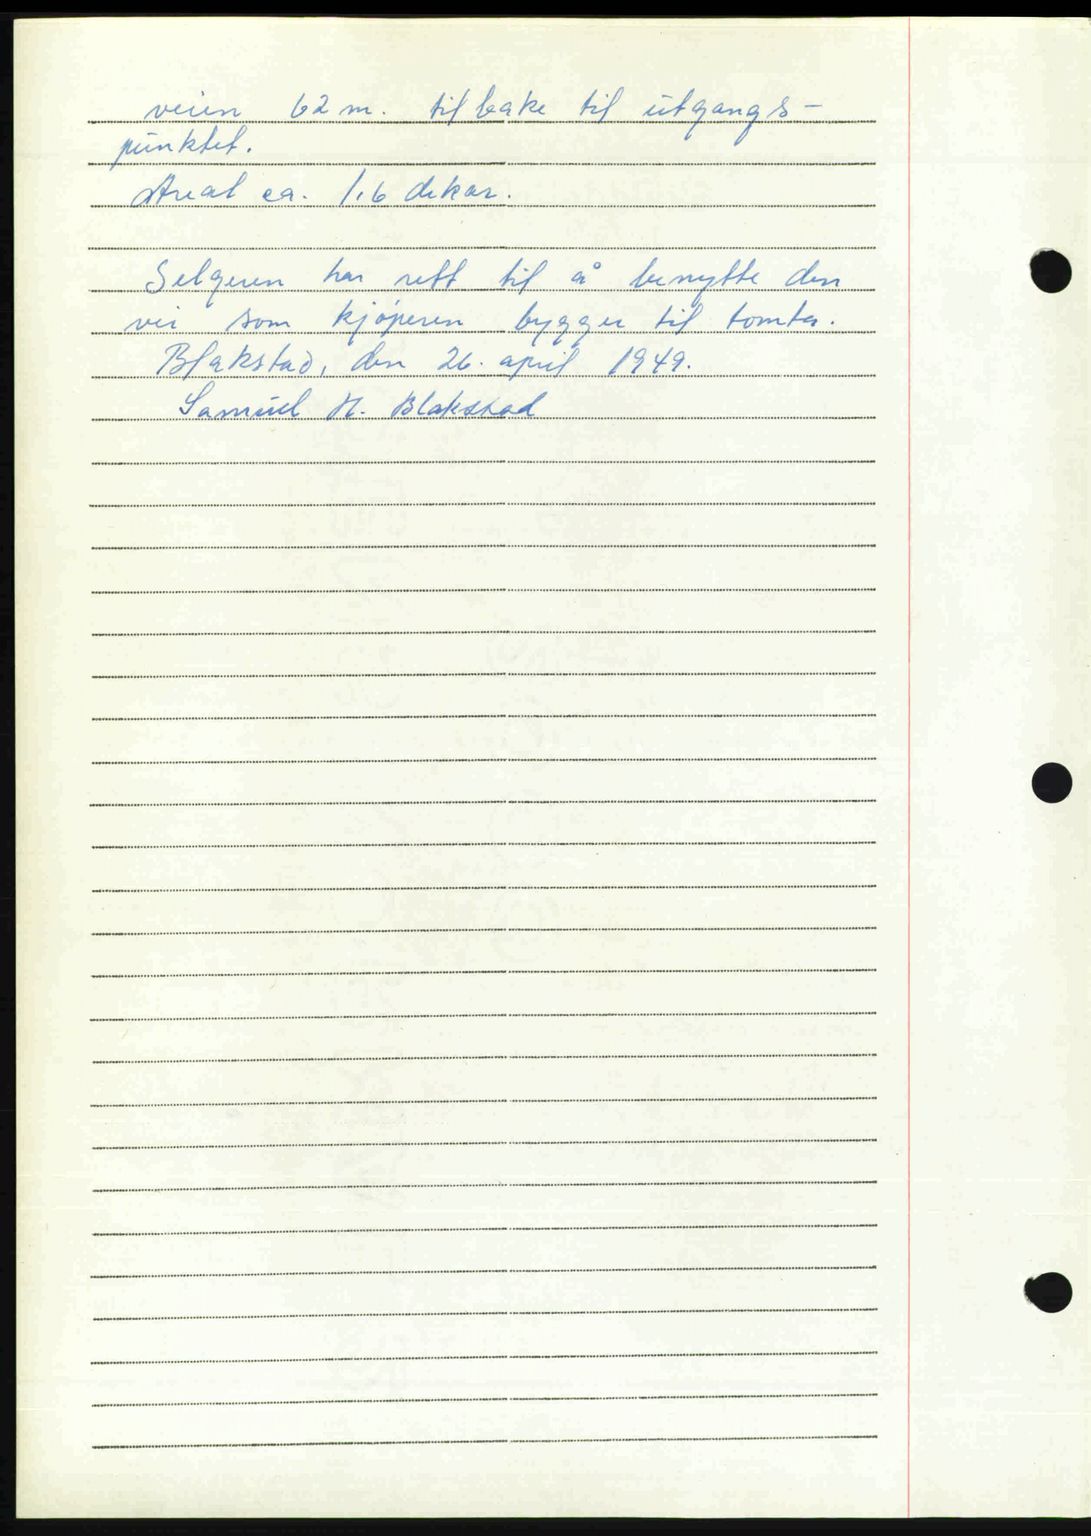 veien 62 m. tilbake til utgangs-
punktet.
Areal ca. 1,6 dekar.
Selgeren har rett til å benytte den
vei som kjøperen bygger til tomta.
Blakstad, den 26. april 1949.
Samuel H. Blakstad